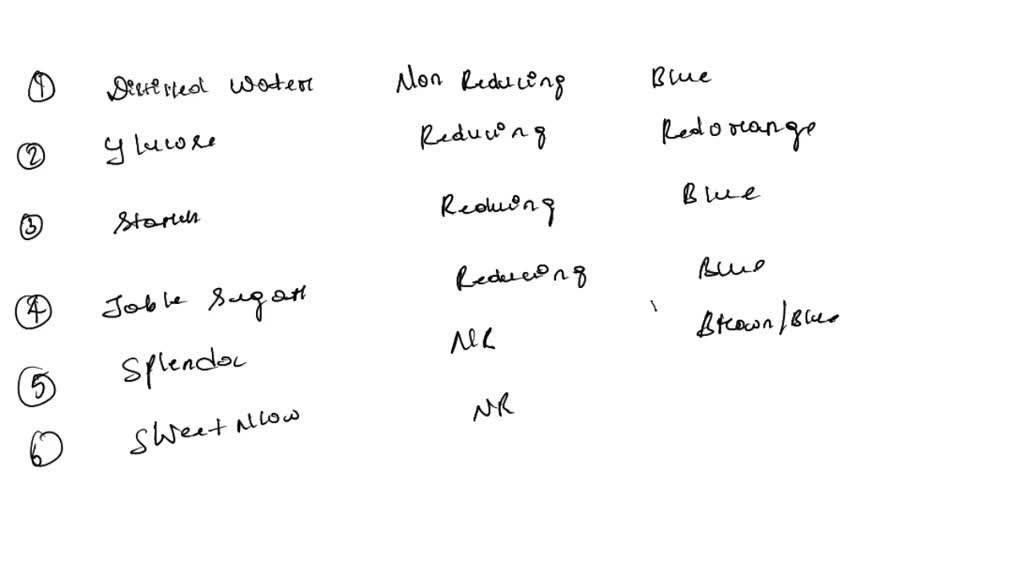 1 Distilled water Non Reducing Blue
2 Glucose Reducing Redorange
3 Starch Reducing Blue
4 Table Sugar Reducing Blue
5 Splendoc NR Brown/Blue
6 Sweet Nlow NR